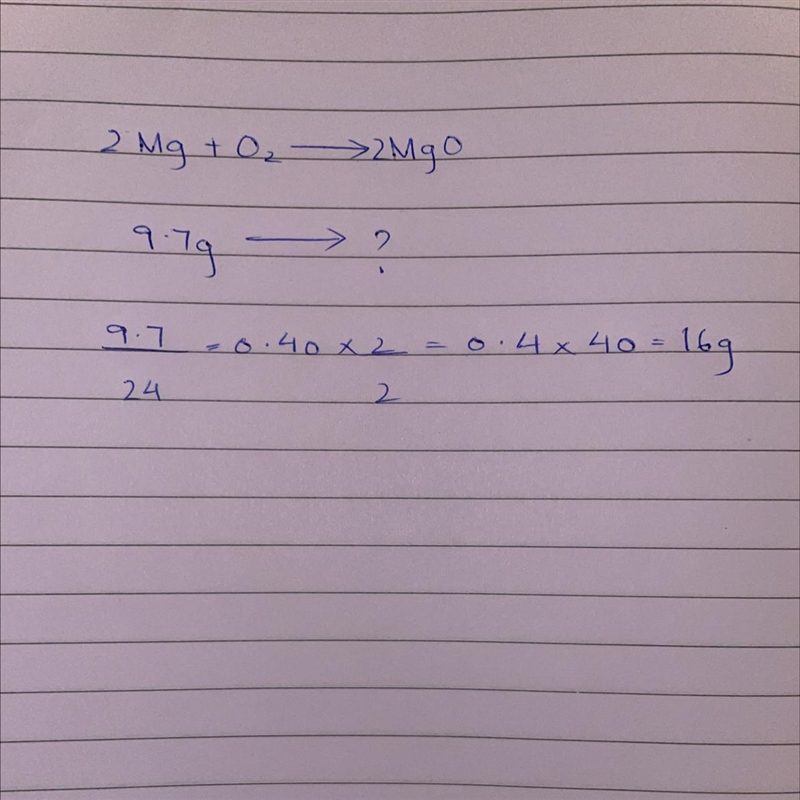 2Mg + O₂ ⟶ 2MgO
9.7g ⟶ ?
9.7/24 = 0.40 × 2/2 = 0.4 × 40 = 16g